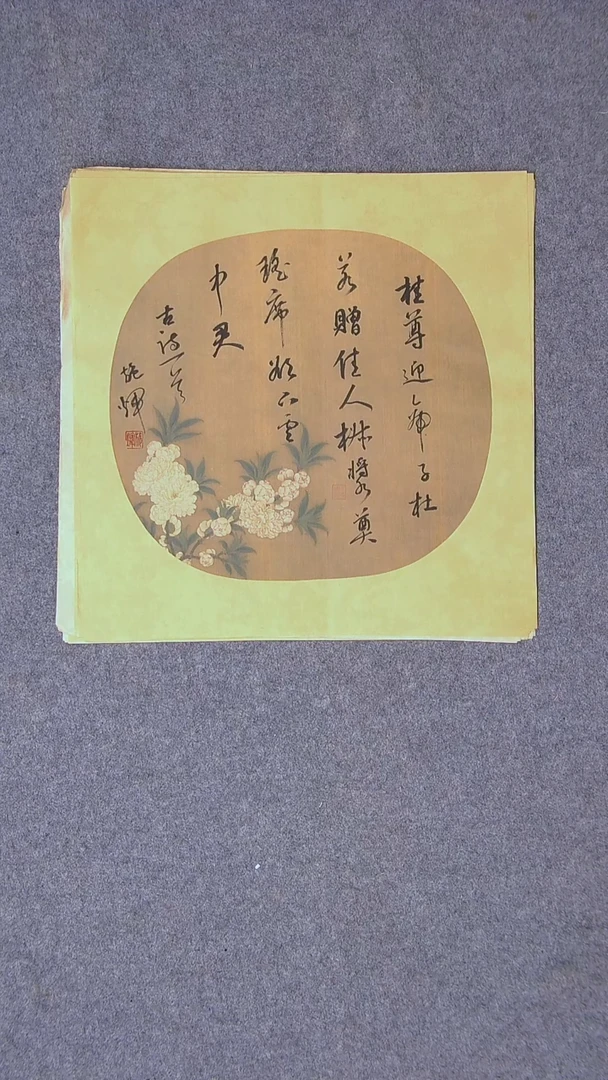 桂尊迎帝子杜
若贈佳人椒漿奠
瑤席欲下雲
中君
古詩一首